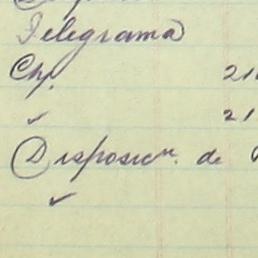 Telegrama
Ch/. 21
✓ 21
Disposicn. de
✓